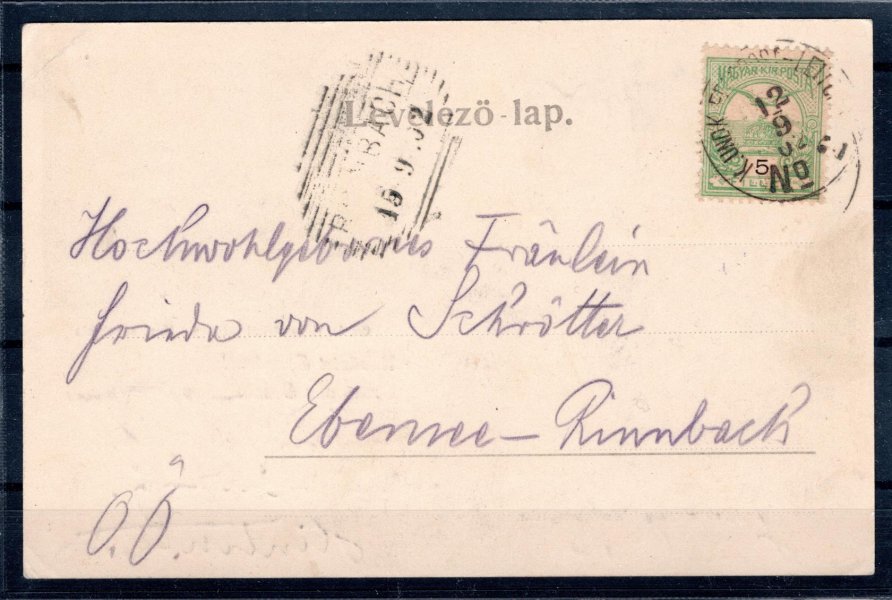 Levelező-lap.
MAGYAR KIR. POSTA
5
12
9
02
No
RINNBACH
15 9.02
Hochwohlgebornes Fräulein
Frieda von Schrötter
Ebensee-Rinnbach
O.Ö